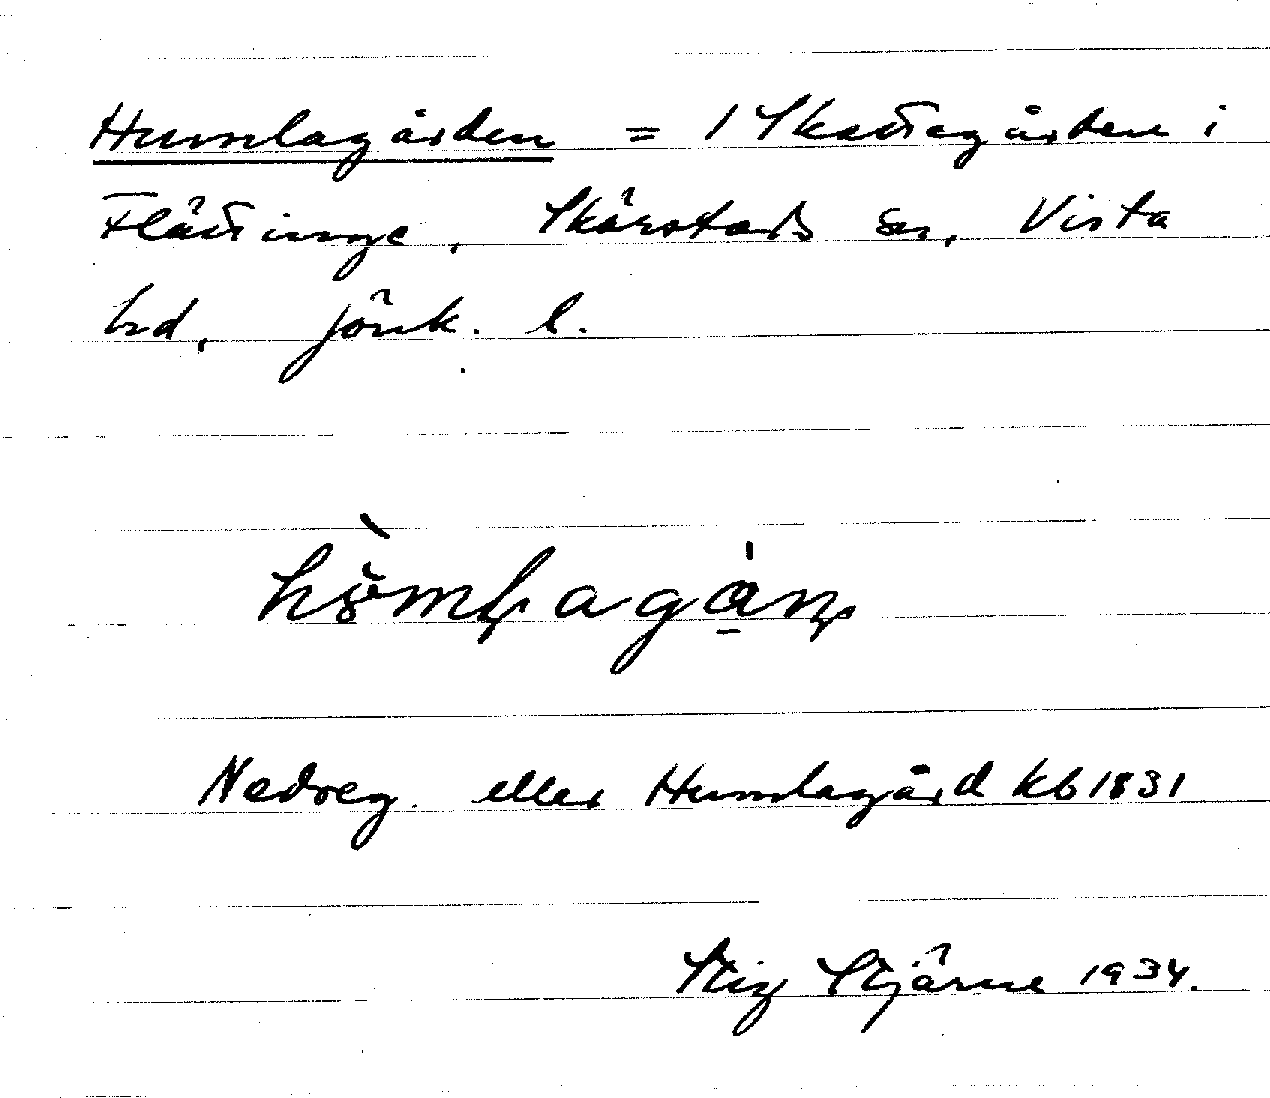 Humlagården = 1 Skattegården i
Flättinge, Skärstads sn, Vista
hd, Jönk. l.
Nedreg. eller Humlagård kb 1831
Stig Stjärne 1934.